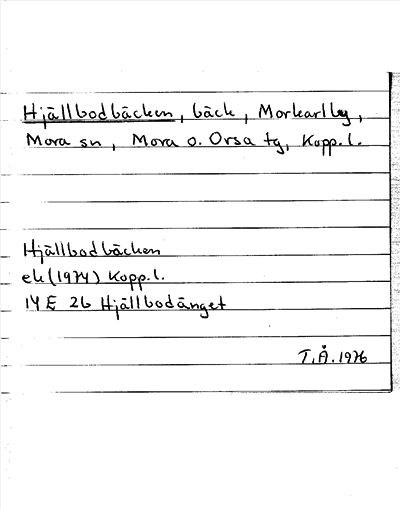 Hjällbodbäcken, bäck, Morkarlby,
Mora sn, Mora o. Orsa tg, Kopp.l.
Hjällbodbäcken
ek (1974) Kopp.l.
14E 2b Hjällbodänget
T.Å. 1976